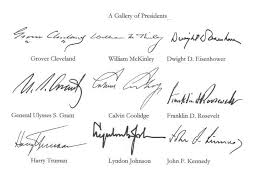 A Gallery of Presidents
Grover Cleveland William McKinley Dwight D. Eisenhower
Grover Cleveland William McKinley Dwight D. Eisenhower
U. S. Grant Calvin Coolidge Franklin D. Roosevelt
General Ulysses S. Grant Calvin Coolidge Franklin D. Rosevelt
Harry Truman Lyndon B. Johnson John F. Kennedy
Harry Truman Lyndon Johnson John F. Kennedy